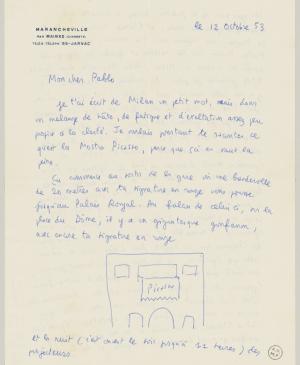 MARANCHEVILLE
PAR MAINXE (CHARENTE)
le 12 Octobre 53
Mon cher Pablo
Je t'ai écrit de Milan un petit mot, mais dans
un mélange de hâte, de fatigue et d'exaltation assez peu
propice à la clarté. Je voulais pourtant te raconter ce
qu'est la Mostra Picasso, parce que ça en vaut la
Ça commence au sortir de la gare où une banderolle
de 20 mètres avec ta signature en rouge vous
jusqu'au Palais Royal. Au balcon de celui-ci, sur la
place du Dôme, il y a un gigantesque gonfanon,
avec encore ta signature en rouge
Picasso
et la nuit (c'est ouvert le soir jusqu'à 12 heures) des
projecteurs